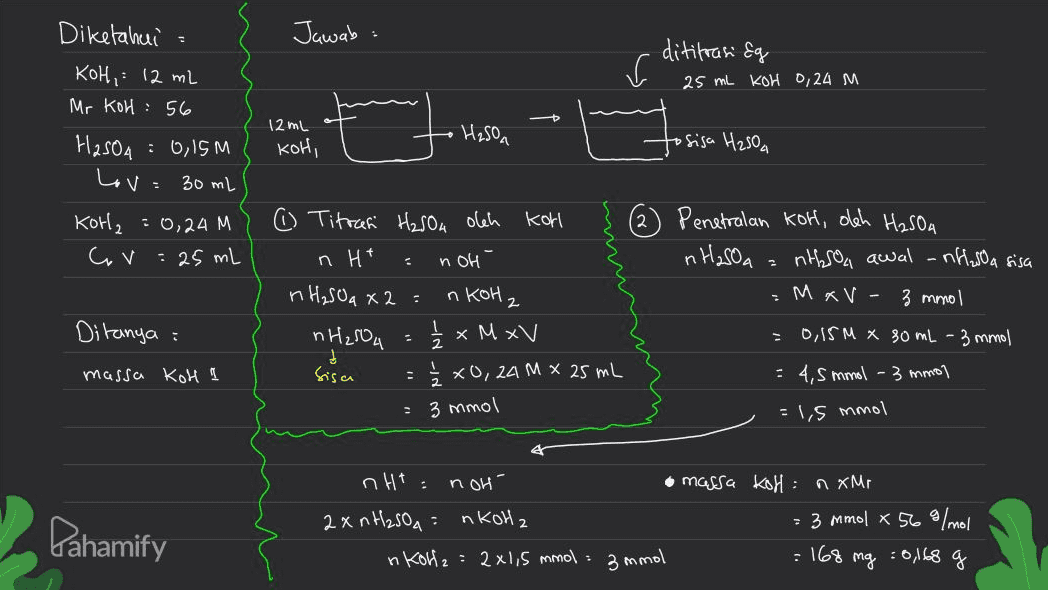 Diketahui =
KOH₁ : 12 mL
Mr KOH : 56
H₂SO₄ : 0,15 M
↳ V = 30 mL
KOH₂ = 0,24 M
↳ V = 25 mL
Ditanya :
massa KOH 1
Jawab :
12 mL
KOH₁
H₂SO₄
dititrasi dg
25 mL KOH 0,24 M
sisa H₂SO₄
① Titrasi H₂SO₄ oleh KOH
n H⁺ = n OH⁻
n H₂SO₄ x 2 = n KOH₂
n H₂SO₄ = 1/2 x M x V
sisa = 1/2 x 0,24 M x 25 mL
= 3 mmol
② Penetralan KOH₁ oleh H₂SO₄
n H₂SO₄ = n H₂SO₄ awal - n H₂SO₄ sisa
= M x V - 3 mmol
= 0,15 M x 30 mL - 3 mmol
= 4,5 mmol - 3 mmol
= 1,5 mmol
n H⁺ = n OH⁻
2 x n H₂SO₄ = n KOH₂
n KOH₂ = 2 x 1,5 mmol = 3 mmol
• massa KOH : n x Mr
= 3 mmol x 56 g/mol
= 168 mg = 0,168 g
Pahamify